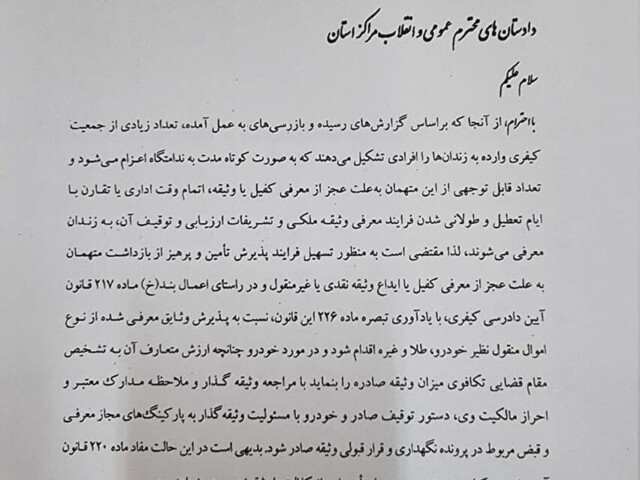 دادستان های محترم عمومی و انقلاب مراکز استان
سلام علیکم
با احترام، از آنجا که بر اساس گزارش‌های رسیده و بازرسی‌های به عمل آمده، تعداد زیادی از جمعیت
کیفری وارده به زندان‌ها را افرادی تشکیل می‌دهند که به صورت کوتاه مدت به ندامتگاه اعزام می‌شود و
تعداد قابل توجهی از این متهمان به‌علت عجز از معرفی کفیل یا وثیقه، اتمام وقت اداری یا تقارن با
ایام تعطیل و طولانی شدن فرایند معرفی وثیقه ملکی و تشریفات ارزیابی و توقیف آن، به زندان
معرفی می‌شوند، لذا مقتضی است به منظور تسهیل فرایند پذیرش تأمین و پرهیز از بازداشت متهمان
به علت عجز از معرفی کفیل یا ایداع وثیقه نقدی یا غیرمنقول و در راستای اعمال بند(خ) ماده ۲۱۷ قانون
آیین دادرسی کیفری، با یادآوری تبصره ماده ۲۲۶ این قانون، نسبت به پذیرش وثایق معرفی شده از نوع
اموال منقول نظیر خودرو، طلا و غیره اقدام شود و در مورد خودرو چنانچه ارزش متعارف آن به تشخیص
مقام قضایی تکافوی میزان وثیقه صادره را بنماید با مراجعه وثیقه گذار و ملاحظه مدارک معتبر و
احراز مالکیت وی، دستور توقیف صادر و خودرو با مسئولیت وثیقه‌گذار به پارکینگ‌های مجاز معرفی و
و قبض مربوط در پرونده نگهداری و قرار قبولی وثیقه صادر شود. بدیهی است در این حالت مفاد ماده ۲۲۰ قانون